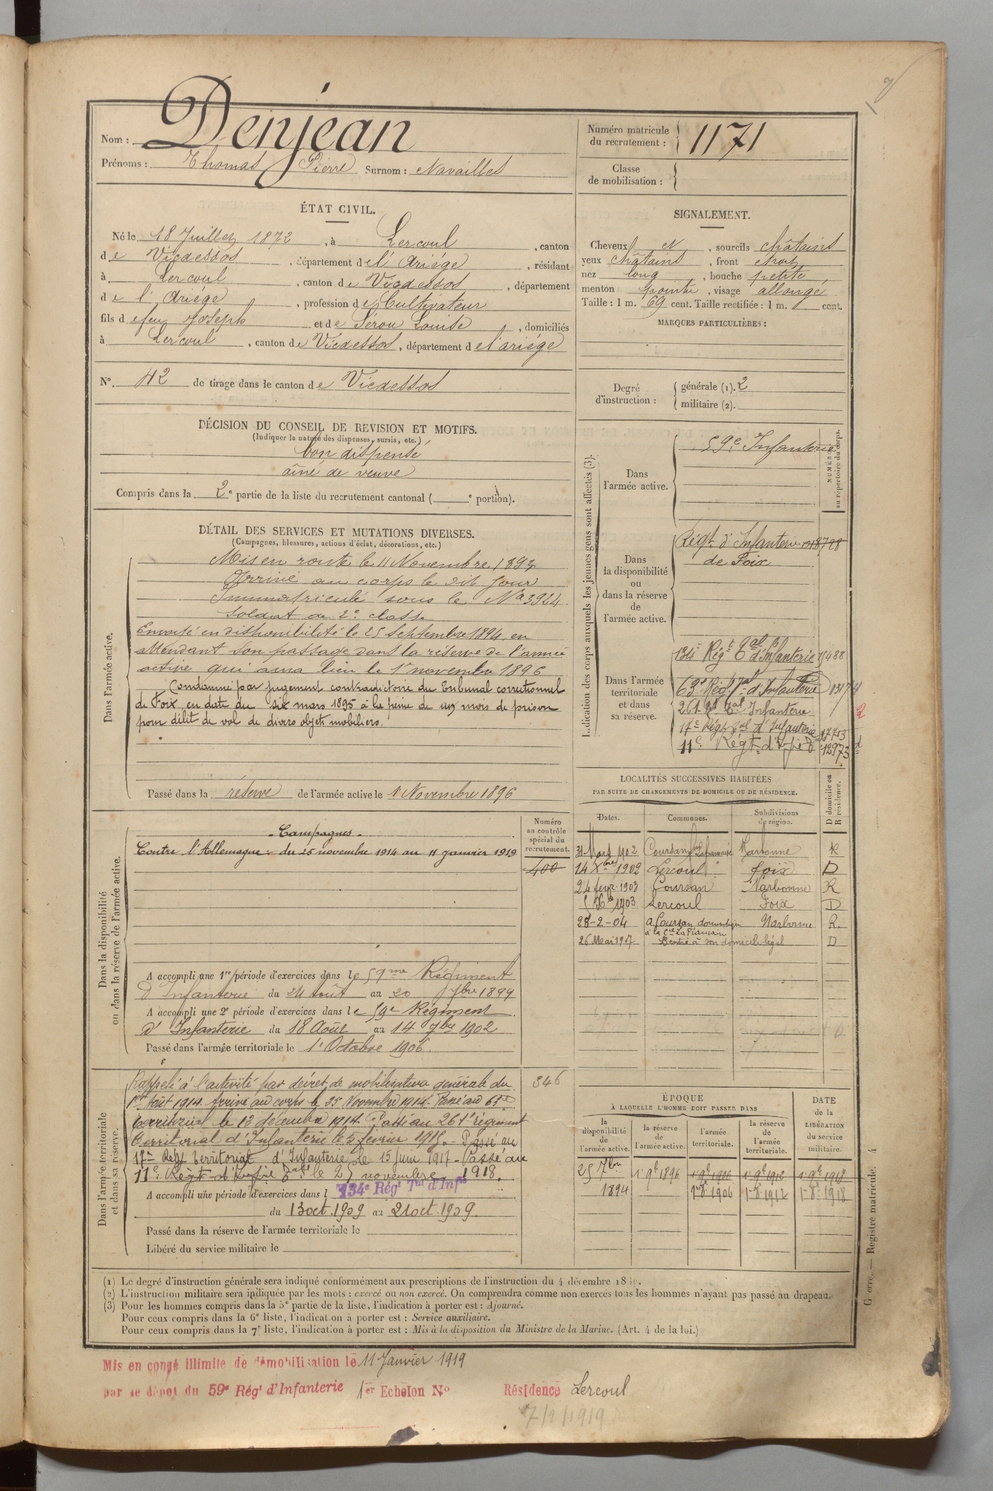 Nom : Denjean
Prénoms : Thomas Pierre Surnom : Navailles
Numéro matricule du recrutement : 1171
Classe de mobilisation :
ÉTAT CIVIL.
Né le 18 Juillet 1872, à Lercoul, canton
de Vicdessos, département de l'Ariége, résidant
à Lercoul, canton de Vicdessos, département
de l'Ariége, profession de Cultivateur
fils de feu Joseph et de Sérou Louise, domiciliés
à Lercoul, canton de Vicdessos, département de l'ariége
N° 42 de tirage dans le canton de Vicdessos
SIGNALEMENT.
Cheveux et, sourcils châtains
yeux châtains, front étroit
nez long, bouche petite
menton pointu, visage allongé
Taille : 1 m. 69 cent. Taille rectifiée : 1 m. cent.
MARQUES PARTICULIÈRES :
Degré d'instruction : générale (1). 2
militaire (2).
DÉCISION DU CONSEIL DE REVISION ET MOTIFS.
(Indiquer la nature des dispenses, sursis, etc.)
bon dispensé
aîné de veuve
Compris dans la 2e partie de la liste du recrutement cantonal ( e portion).
DÉTAIL DES SERVICES ET MUTATIONS DIVERSES.
(Campagnes, blessures, actions d'éclat, décorations, etc.)
Dans l'armée active.
Mis en route le 11 Novembre 1893
Arrivé au corps le dit jour
Immatriculé sous le No 3924
Soldat de 2e classe
Envoyé en disponibilité le 25 Septembre 1894 en
attendant son passage dans la réserve de l'armée
active qui aura lieu le 1er novembre 1896
Condamné par jugement contradictoire du Tribunal correctionnel
de Foix en date du six mars 1895 à la peine de mois de prison
pour délit de vol de divers objets mobiliers.
Passé dans la réserve de l'armée active le 1 Novembre 1896
Indication des corps auxquels les jeunes gens sont affectés (3).
NUMÉROS au répertoire du corps.
Dans l'armée active.
59e Infanterie
Dans la disponibilité ou dans la réserve de l'armée active.
Régt. d'Infanterie
de Foix
Dans l'armée territoriale et dans sa réserve.
134e Régt Tal d'Infanterie
63e Régt Tal d'Infanterie
261 Rgt Tal Infanterie
17e Régt Tal d'Infanterie 17713
11e Régt d'Infie 13973
LOCALITÉS SUCCESSIVES HABITÉES
PAR SUITE DE CHANGEMENTS DE DOMICILE OU DE RÉSIDENCE.
Dates. Communes. Subdivisions de région. D domicile ou R résidence.
31 Mars 1902 Coursan Narbonne R
14 Xbre 1902 Lercoul Foix D
24 fevr 1903 Coursan Narbonne R
1903 Lercoul Foix D
28-2-04 à Coursan domestique Narbonne R.
26 Mai 1917 Rentré à son domicile légal D
Numéro au contrôle spécial du recrutement.
400
Dans la disponibilité ou dans la réserve de l'armée active.
Campagnes
Contre l'Allemagne : du 25 novembre 1914 au 11 janvier 1919
A accompli une 1re période d'exercices dans le 59me Régiment
d'Infanterie du 24 Août au 20 7bre 1899
A accompli une 2e période d'exercices dans le 59e Régiment
d'Infanterie du 18 Août au 14 7bre 1902
Passé dans l'armée territoriale le 1er Octobre 1906
Dans l'armée territoriale et dans sa réserve.
346
Rappelé à l'activité par décret de mobilisation générale du
1er Août 1914. Arrivé au corps le 25 Novembre 1914. Passé au 63e
territorial le 12 décembre 1914. Passé au 261e régiment
Territorial d'Infanterie le 5 février 1915. Passé au
17e Régt Territorial d'Infanterie le 15 Juin 1917 - Passé au
11e Régt d'Infie le 25 novembre 1918.
134e Régt Tal d'Infie
A accompli une période d'exercices dans l
du 13 oct. 1909 au 21 oct. 1909.
Passé dans la réserve de l'armée territoriale le
Libéré du service militaire le
ÉPOQUE
À LAQUELLE L'HOMME DOIT PASSER DANS
la disponibilité de l'armée active. la réserve de l'armée active. l'armée territoriale. la réserve de l'armée territoriale.
DATE de la LIBÉRATION du service militaire.
25 7bre 1894 1896 1906 1912 1918
(1) Le degré d'instruction générale sera indiqué conformément aux prescriptions de l'instruction du 4 décembre
(2) L'instruction militaire sera indiquée par les mots : exercé ou non exercé. On comprendra comme non exercés tous les hommes n'ayant pas passé au drapeau.
(3) Pour les hommes compris dans la 5e partie de la liste, l'indication à porter est : Ajourné.
Pour ceux compris dans la 6e liste, l'indication à porter est : Service auxiliaire.
Pour ceux compris dans la 7e liste, l'indication à porter est : Mis à la disposition du Ministre de la Marine. (Art. 4 de la loi.)
Registre matricule. 4
Mis en congé illimité de démobilisation le 11 Janvier 1919
par le dépôt du 59e Régt d'Infanterie 1er Echelon N° Résidence Lercoul